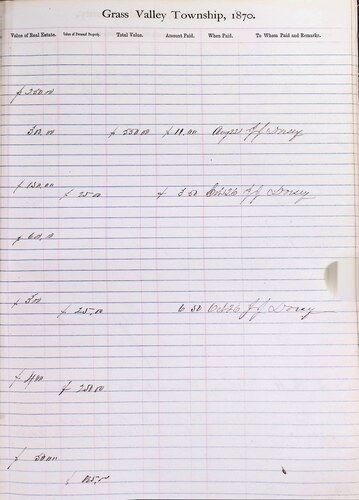 Grass Valley Township, 1870.
Value of Real Estate. Value of Personal Property. Total Value. Amount Paid. When Paid. To Whom Paid and Remarks.
$ 250 00
300 00 $ 550 00 $ 11,00 J J Dorsey
$ 150,00
$ 25 00 $ 3 50 Oct 26 J J Dorsey
$ 60,00
$ 300
$ 25,00 6 50 Oct 26 J J Dorsey
$ 400
$ 250 00
$ 50,00
125,00